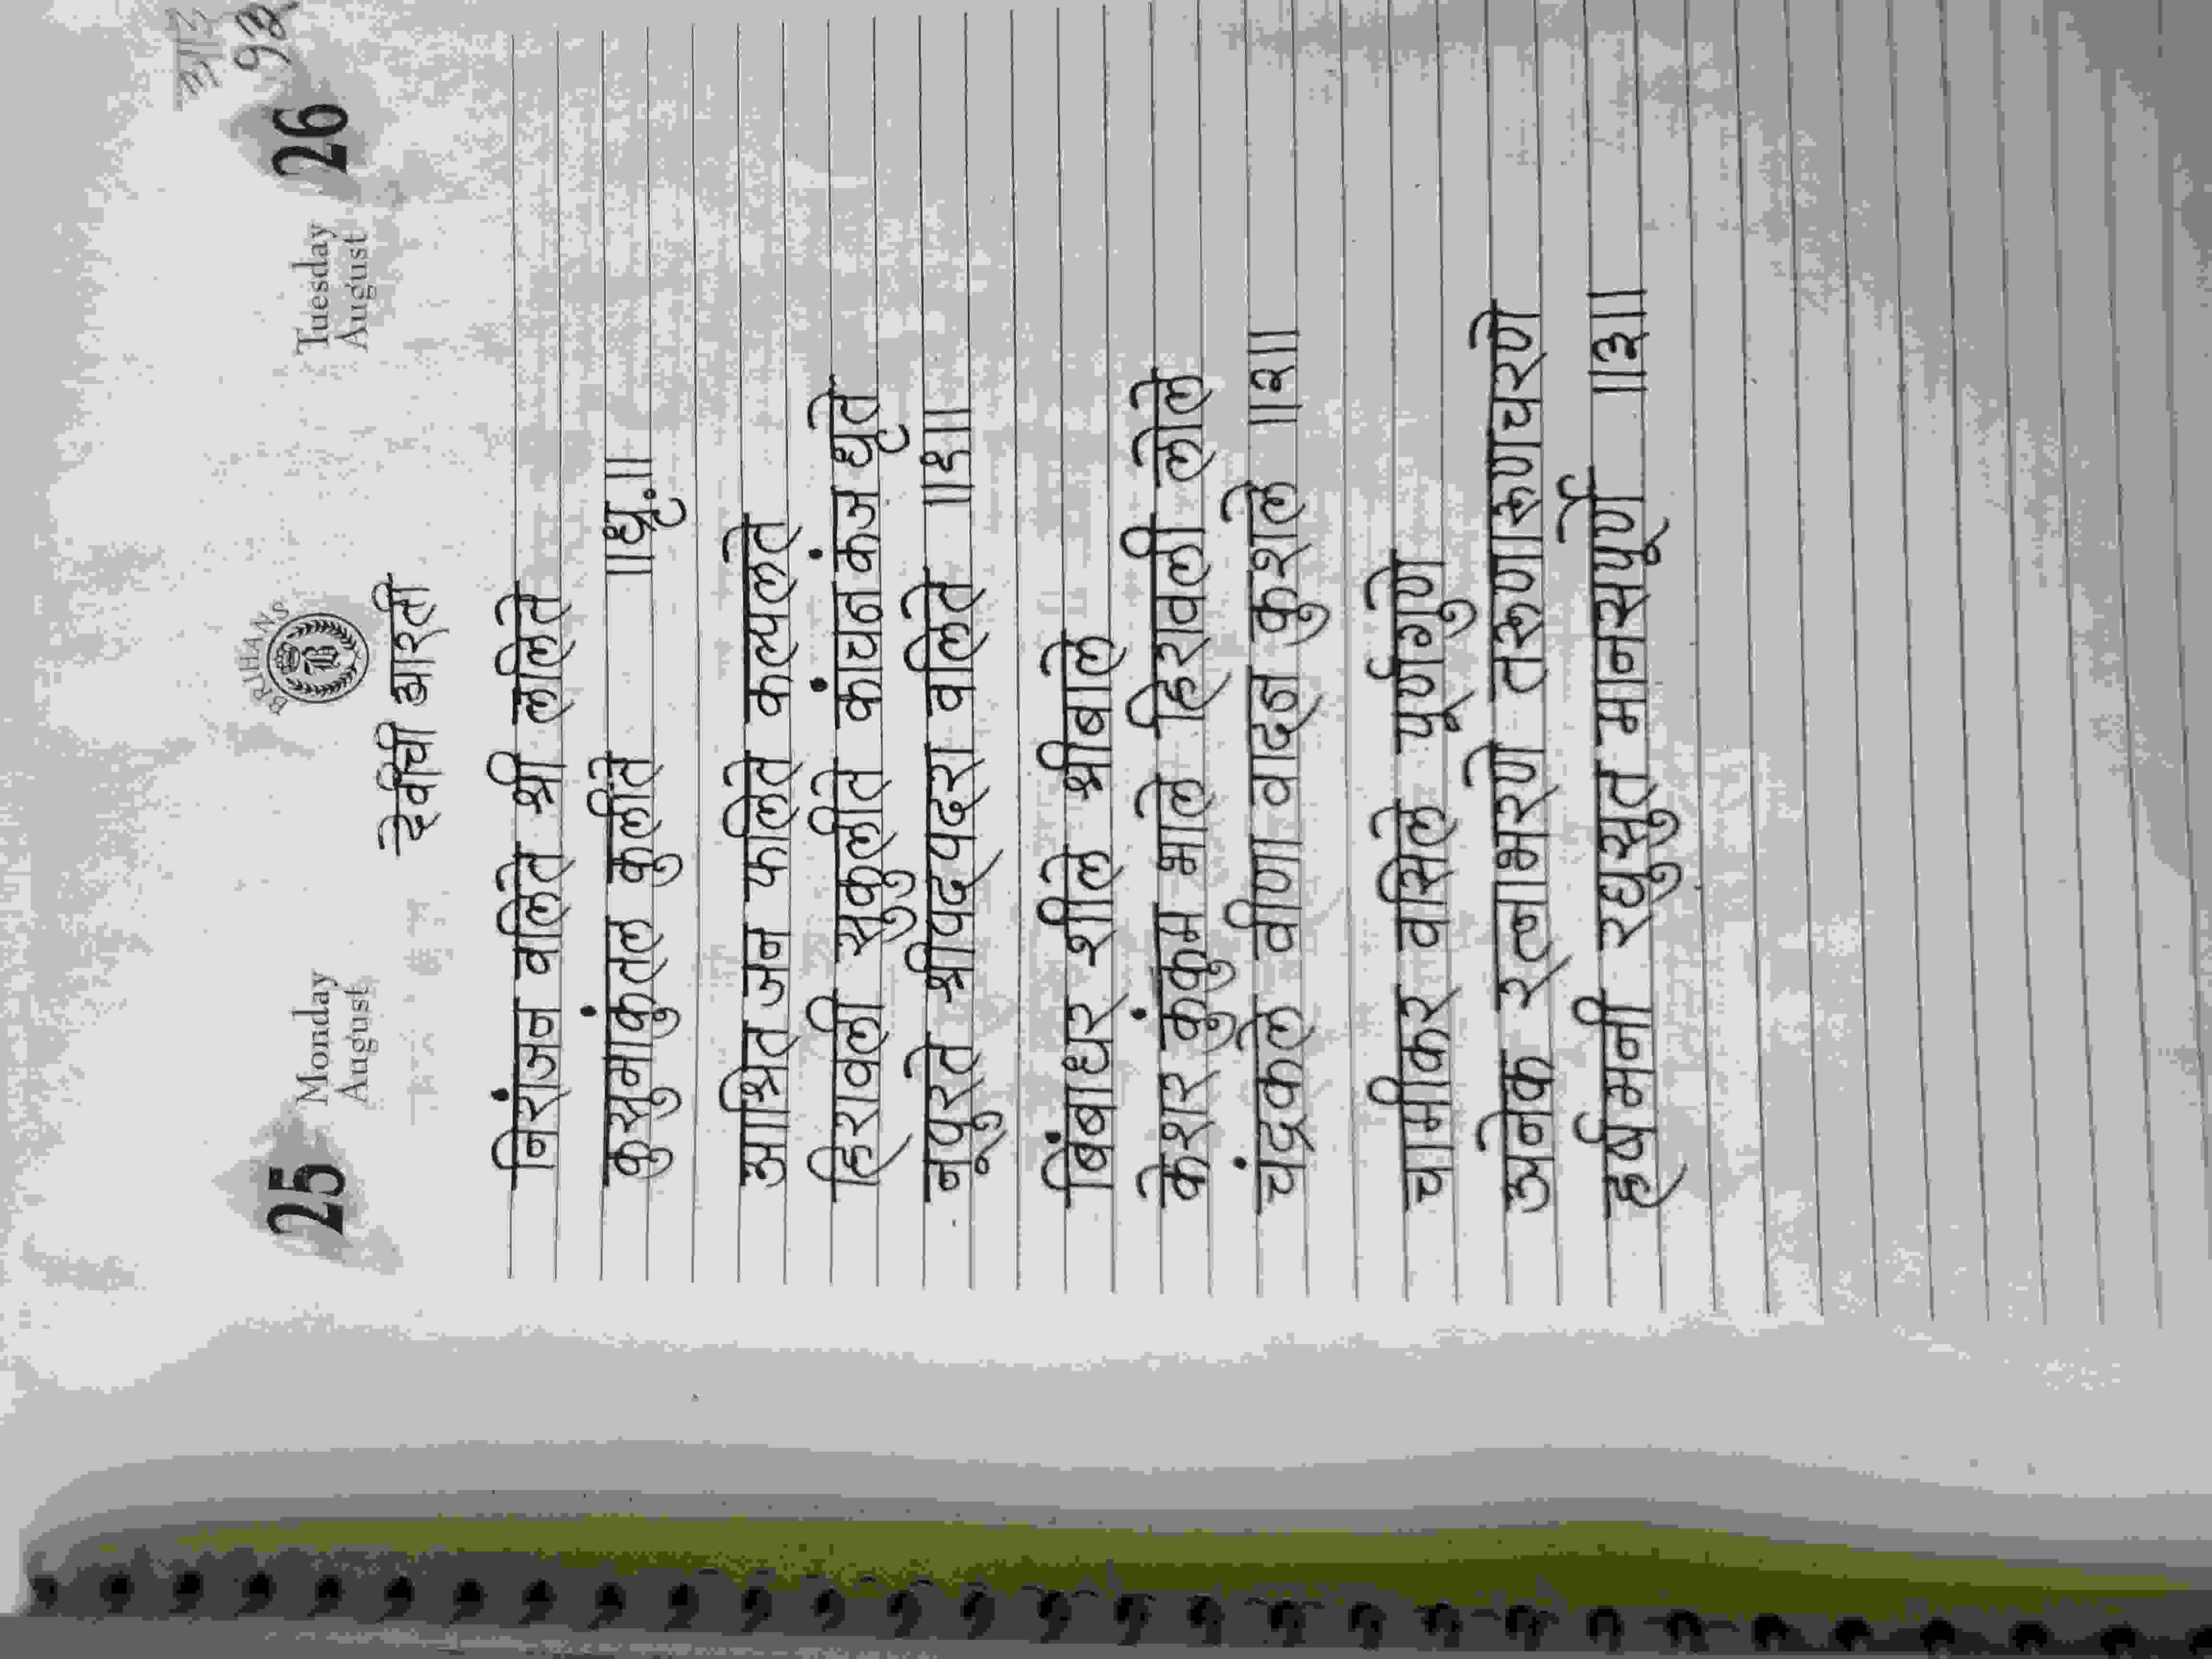 93
25 Monday August
BRIHANS
B
Tuesday August 26
देवीची आरती
निरांजन वलिते श्री ललिते
कुसुमाकुंतल कुलीते ॥धृ.॥
आश्रित जन फलिते कल्पलते
हिरावली सुकुलीते कांचन कंज धृते
नूपुरते श्रीपद्पदरा वलिते ॥१॥
बिंबाधर शीले श्रीबाले
केशर कुंकुम भाले हिरावली लोले
चंद्रकले वीणा वादन कुशले ॥२॥
चामीकर वसिले पूर्णगुणे
अनेक रत्नाभरणे तरूणारूणचरणे
हर्ष मनी रघुसुत मानसपूर्णे ॥३॥